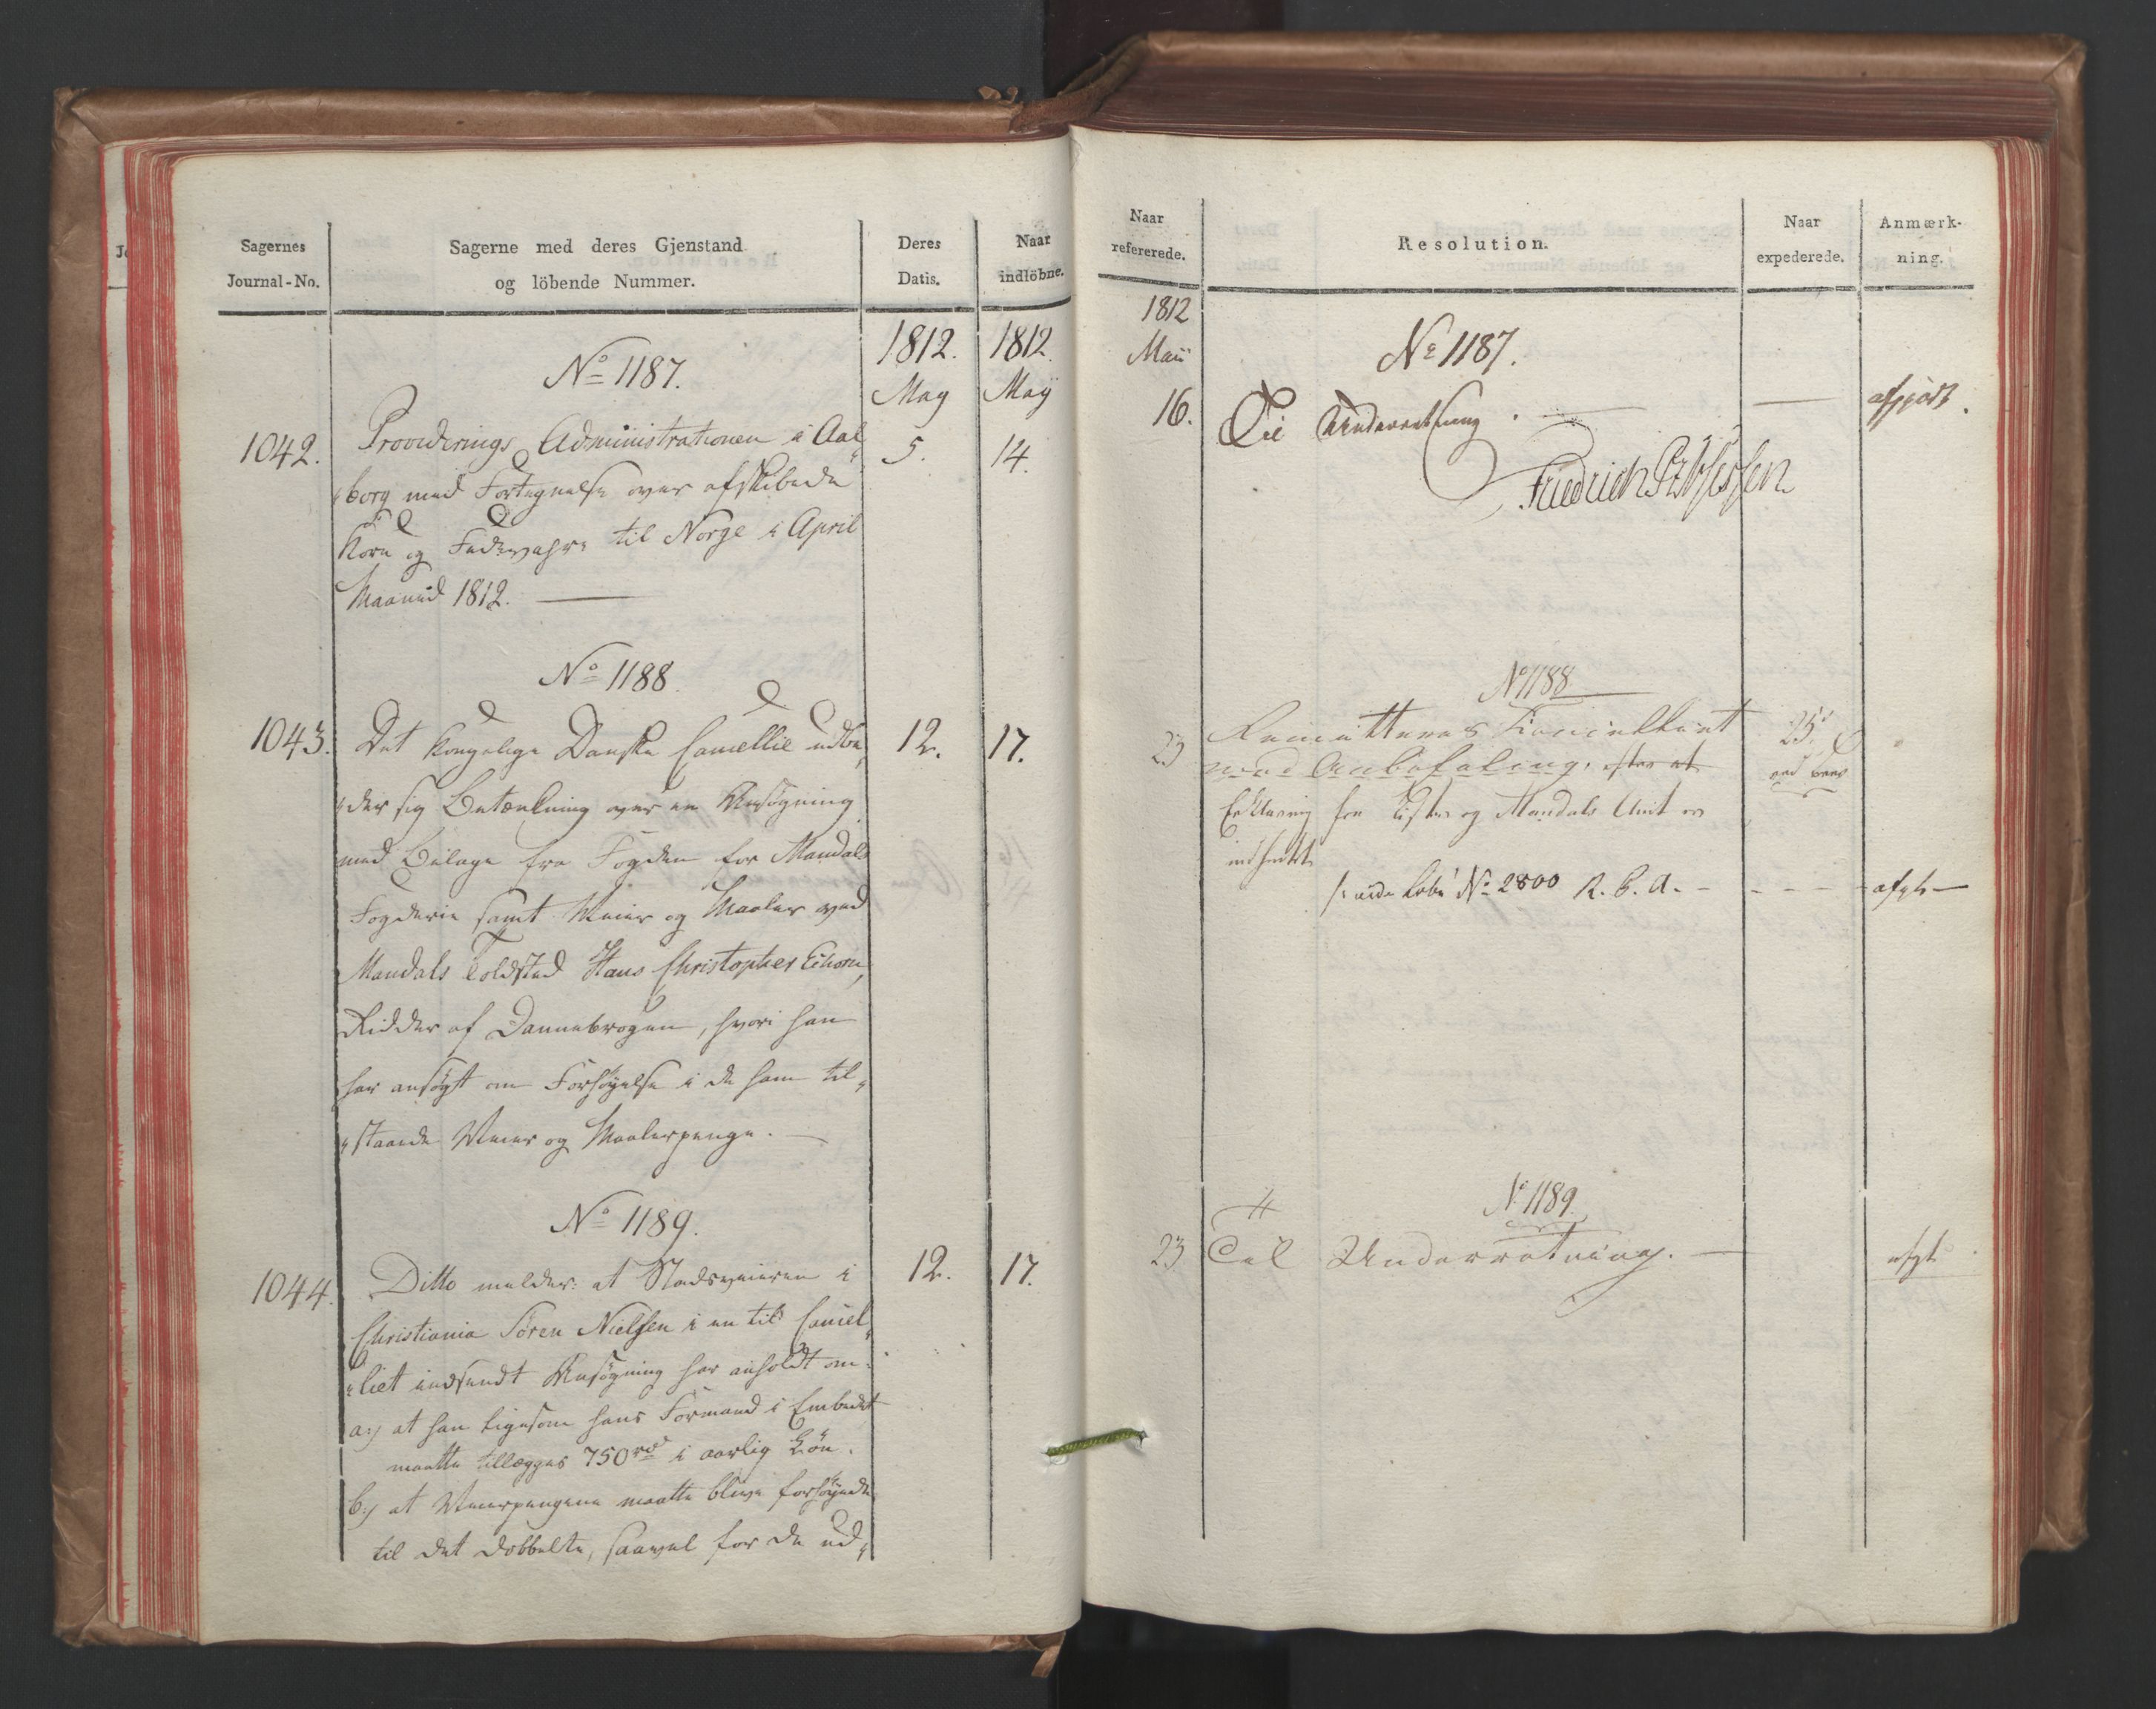 Sagernes
Journal-No.
Sagerne med deres Gjenstand
og löbende Nummer.
Deres
Datis.
Naar
indlöbne.
1812.
May
1812.
Maÿ
No 1187.
1042.
Providerings Administrationen i Aal„
5.
14.
„borg med Fortegnelse over afskibede
Korn og Fedevahre til Norge i April
Maaned 1812. —
No 1188.
1043.
Det Kongelige Danske Cancellie udbe„
12.
17.
„der sig Betænkning over en Ansøgning
med Bilage fra Fogden for Mandals
Fogderie samt Veier og Maaler ved
Mandals Toldsted Hans Christopher Eihorn,
Ridder af Dannebrogen, hvori han
har ansøgt om Forhøyelse i de ham til„
„staaende Veier og Maalerpenge. —
No 1189.
1044.
Ditto melder: at Stadsveieren i
12.
17.
Christiania Sören Nielsen i en til Cancel„
„liet indsendt Ansøgning har anholdt om:
a:) at han ligesom hans Formand i Embedet
maatte tillægges 750 rd i aarlig Løn.
b:) at Veierpengene maatte blive forhøyede
til det dobbelte, saavel for de ud„
Naar
refererede.
Resolution.
Naar
expederede.
Anmærk-
ning.
1812
Maii
No 1187.
16.
Til Underretning. —
—
afgiort.
Friedrich
No 1188
23
Remitteres Cancelliet
25'
med Anbefaling, efter at
Erklæring fra Lister og Mandals Amt er
indhentet
vide Løbe No 2800 R. C. A. —
- - -
afgt —
No 1189.
23
Til Underretning. —
afgt